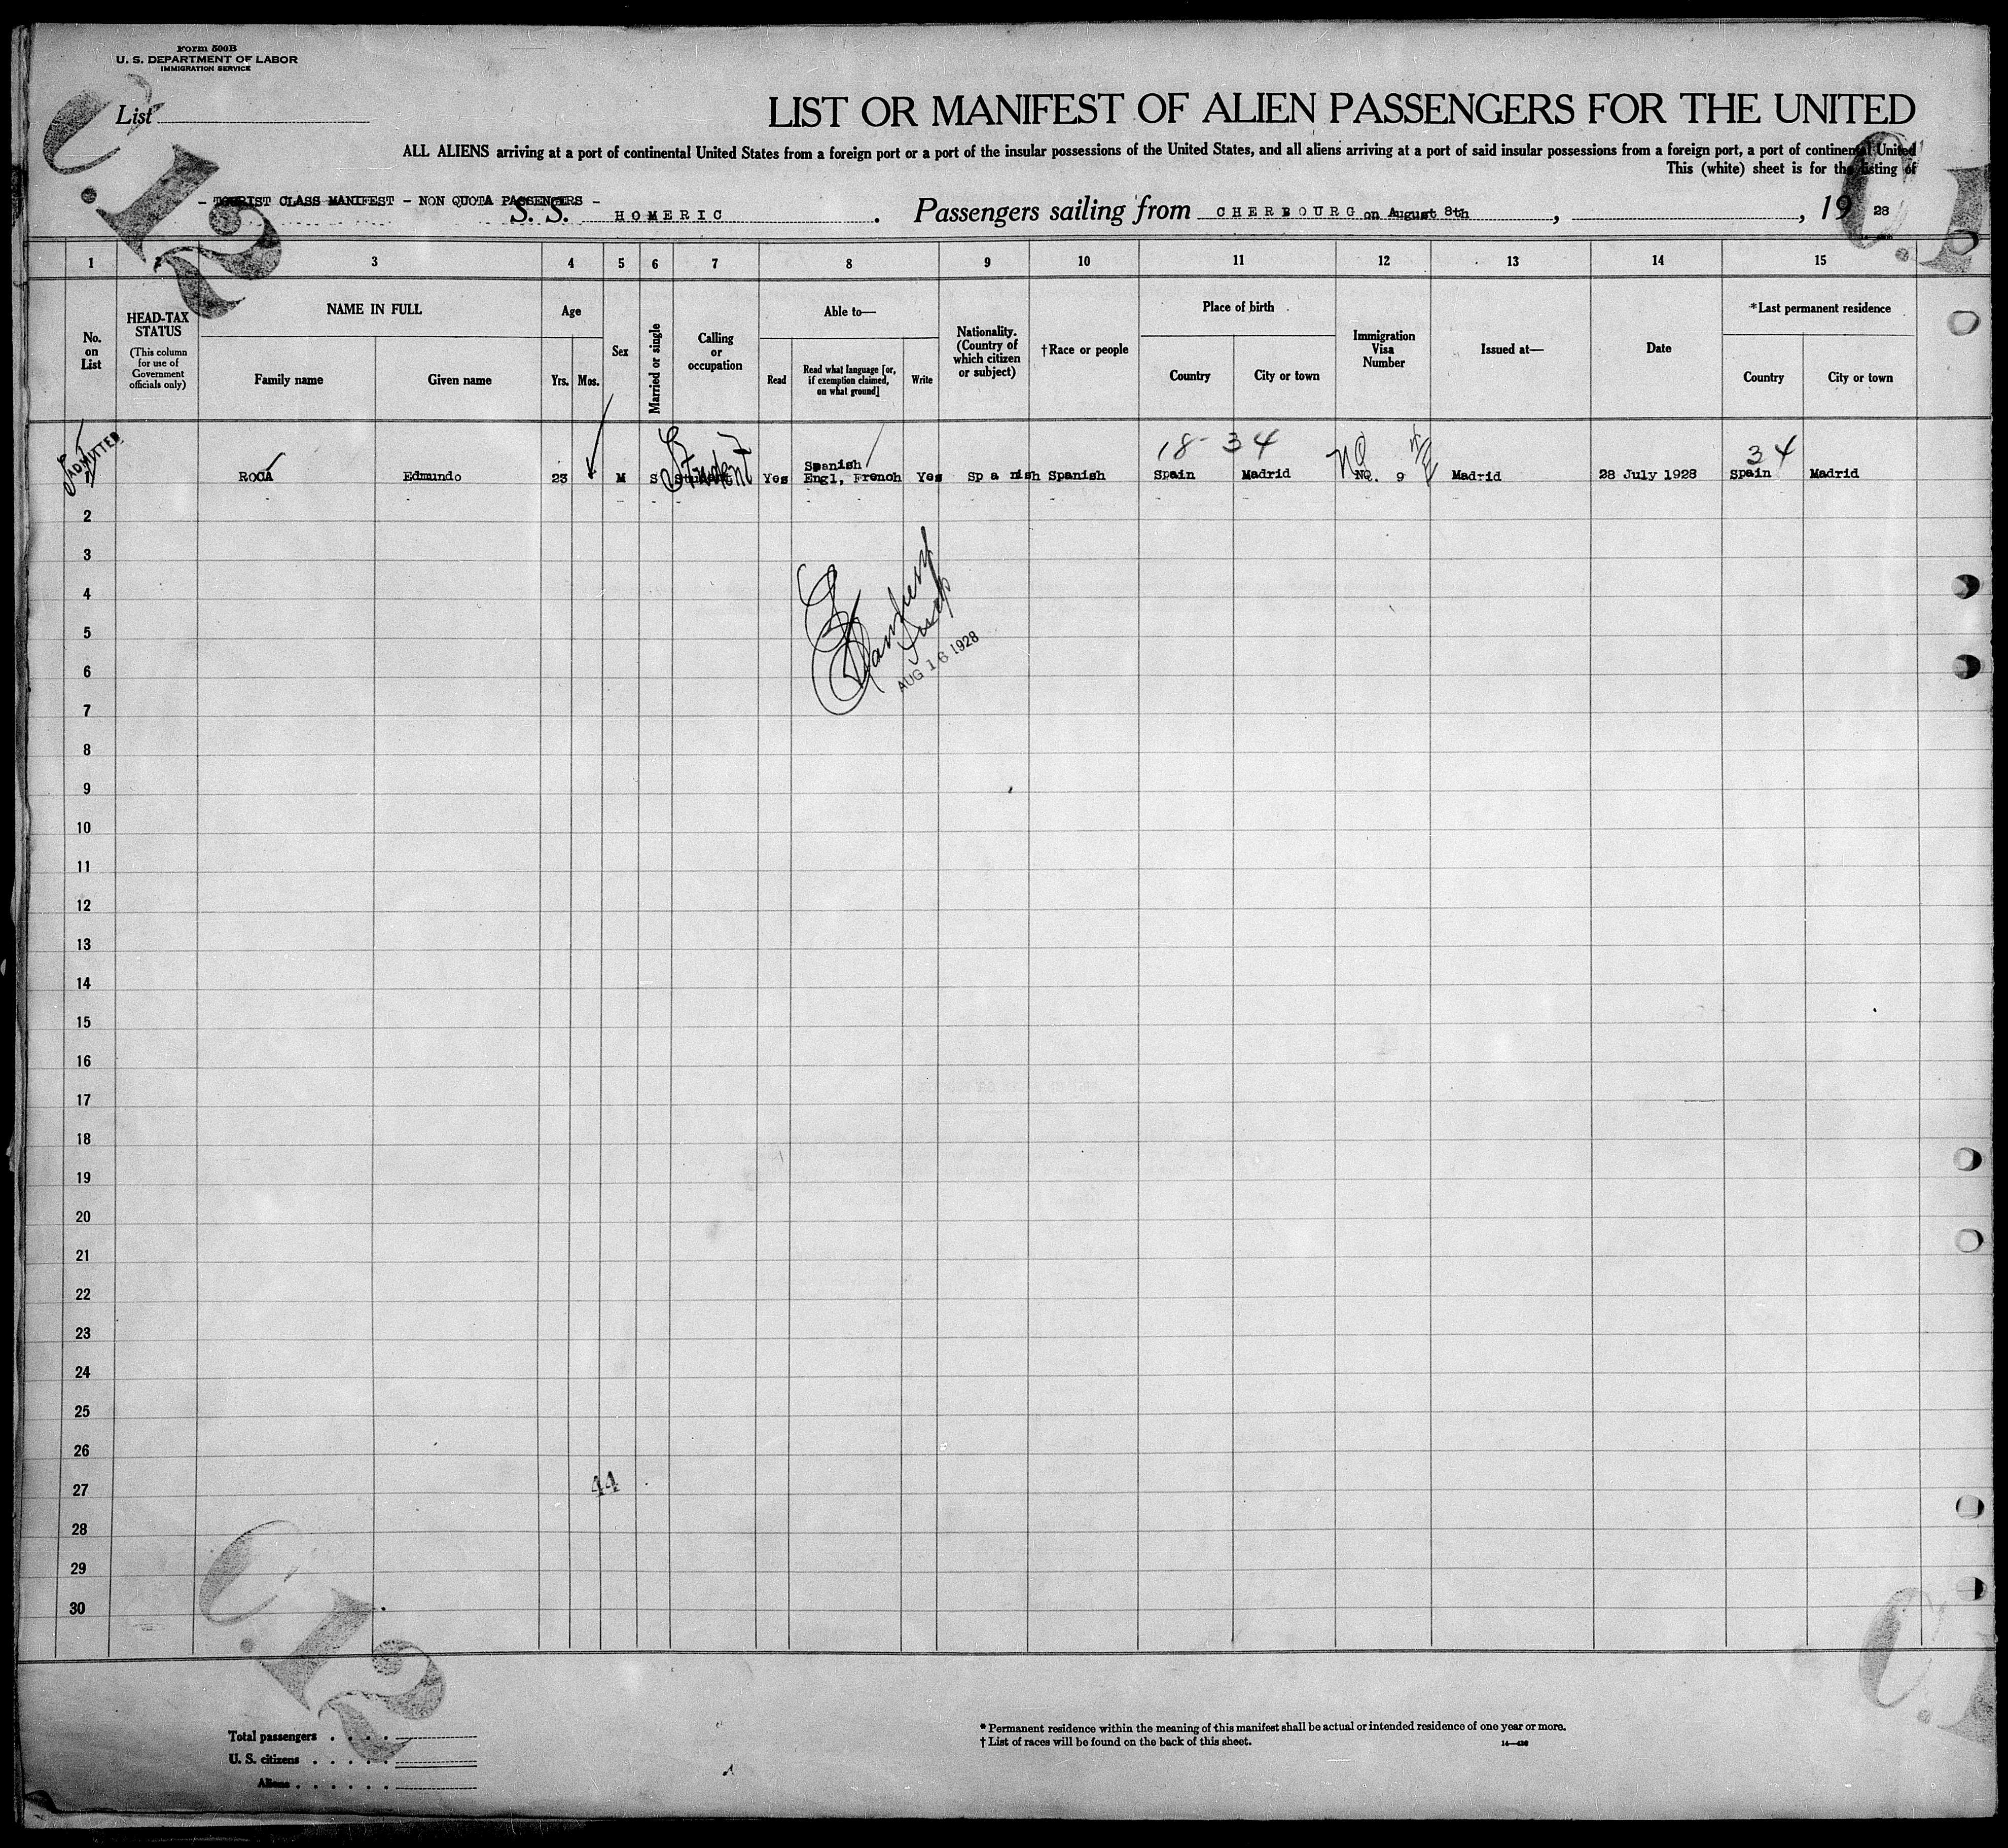 Form 500B
U. S. DEPARTMENT OF LABOR
IMMIGRATION SERVICE
List
LIST OR MANIFEST OF ALIEN PASSENGERS FOR THE UNITED
ALL ALIENS arriving at a port of continental United States from a foreign port or a port of the insular possessions of the United States, and all aliens arriving at a port of said insular possessions from a foreign port, a port of continental United
This (white) sheet is for the listing of
- TOURIST CLASS MANIFEST - NON QUOTA PASSENGERS -
S. S. HOMERIC. Passengers sailing from CHERBOURG on August 8th, , 19 28
1 2 3 4 5 6 7 8 9 10 11 12 13 14 15
No. on List
HEAD-TAX STATUS
(This column for use of Government officials only)
NAME IN FULL
Family name Given name
Age
Yrs. Mos.
Sex
Married or single
Calling or occupation
Able to—
Read
Read what language [or, if exemption claimed, on what ground]
Write
Nationality. (Country of which citizen or subject)
†Race or people
Place of birth
Country City or town
Immigration Visa Number
Issued at—
Date
*Last permanent residence
Country City or town
ADMITTED
Student
18- 34
NQ
34
1 ROCA Edmundo 23 M S Student Yes Spanish Engl, French Yes Sp a nish Spanish Spain Madrid NQ. 9 Madrid 28 July 1928 Spain Madrid
2
3
4
5
AUG 16 1928
6
7
8
9
10
11
12
13
14
15
16
17
18
19
20
21
22
23
24
25
26
27
44
28
29
30
C. 12
C. 12
Total passengers . . . .
U. S. citizens . . . . .
Aliens . . . . . .
* Permanent residence within the meaning of this manifest shall be actual or intended residence of one year or more.
† List of races will be found on the back of this sheet.